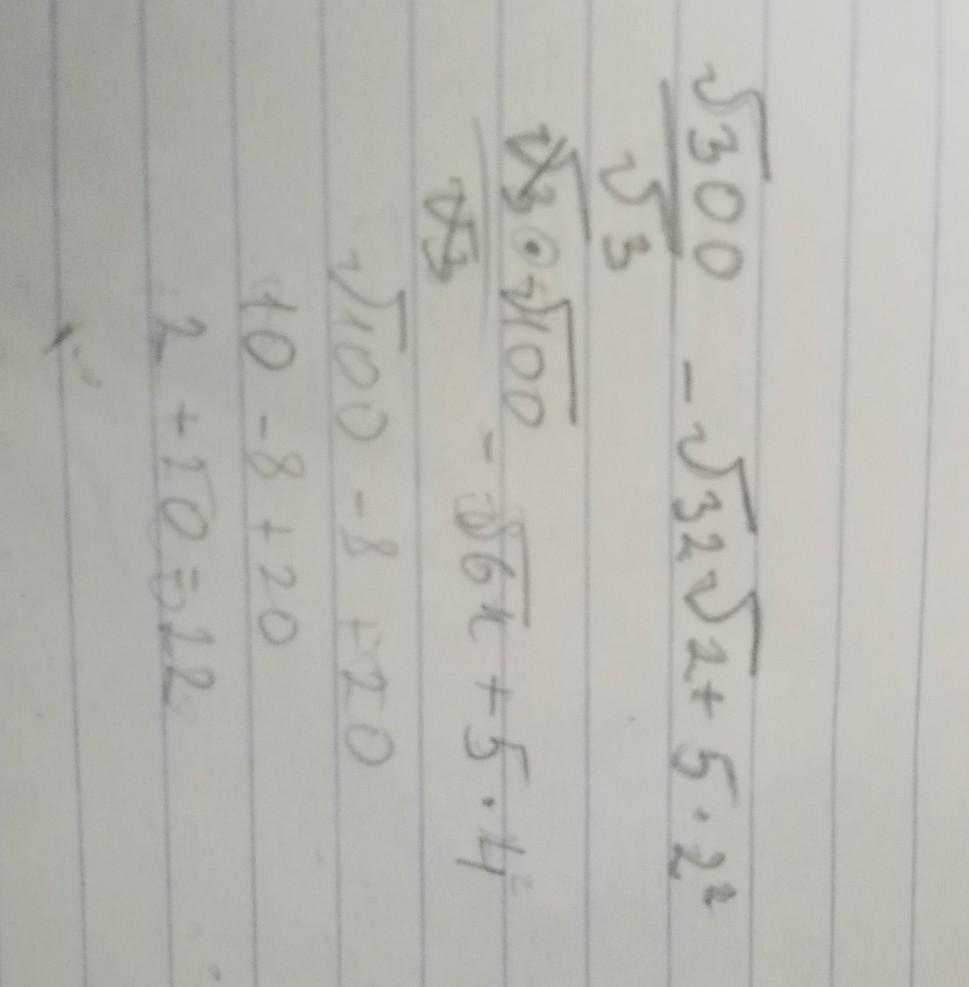 √300/√3 - √32√2 + 5·2²
√3·√100/√3 - √64 + 5·4
√100 - 8 + 20
10 - 8 + 20
2 + 20 = 22